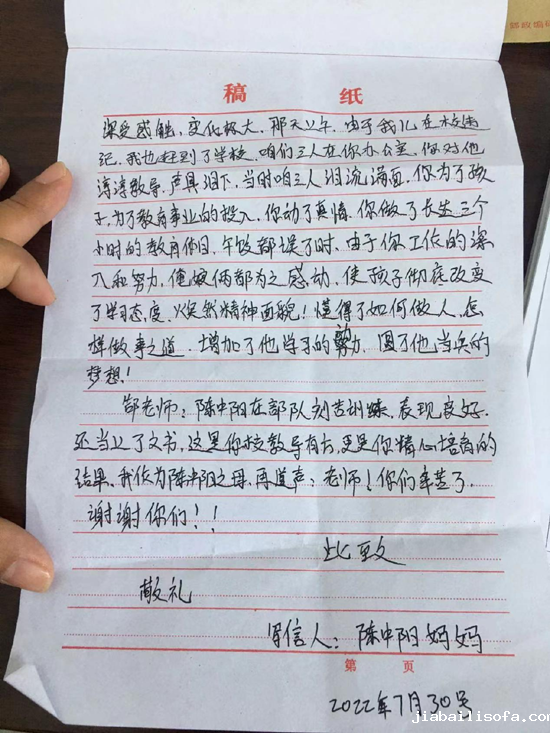 稿 纸
深受感触，变化极大，那天上午，由于我儿在校违
纪，我也赶到了学校，咱们三人在你办公室，你对他
谆谆教导，声具泪下，当时咱三人泪流满面，你为了孩
子，为了教育事业的投入，你动了真情，你做了长达三个
小时的教育作用，午饭都误了时，由于你工作的深
入和努力，俺娘俩都为之感动，使孩子彻底改变
了学习态度，焕然精神面貌！懂得了如何做人，怎
样做事之道，增加了他学习的努力，圆了他当兵的
梦想！
郜老师：陈中阳在部队刻苦训练，表现良好，
还当上了文书，这是你校教导有方，更是你精心培育的
结果，我作为陈中阳之母，再道声：老师！你们辛苦了，
谢谢你们！！
此致
敬礼
写信人：陈中阳妈妈
第 页
2022年7月30号
jiabailisofa.com